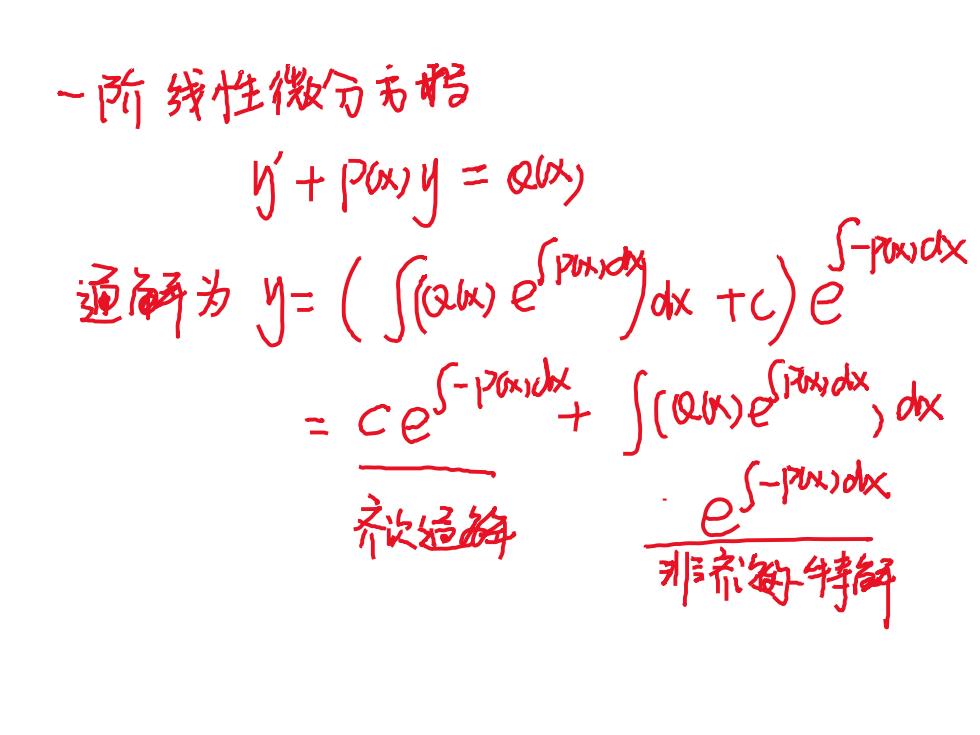 一阶线性微分方程
y' + P(x)y = Q(x)
通解为 y = ( ∫(Q(x) e^{∫P(x)dx})dx + C) e^{∫-P(x)dx}
= C e^{∫-P(x)dx} + ∫(Q(x) e^{∫P(x)dx}) dx
· e^{∫-P(x)dx}
齐次通解
非齐次的一特解